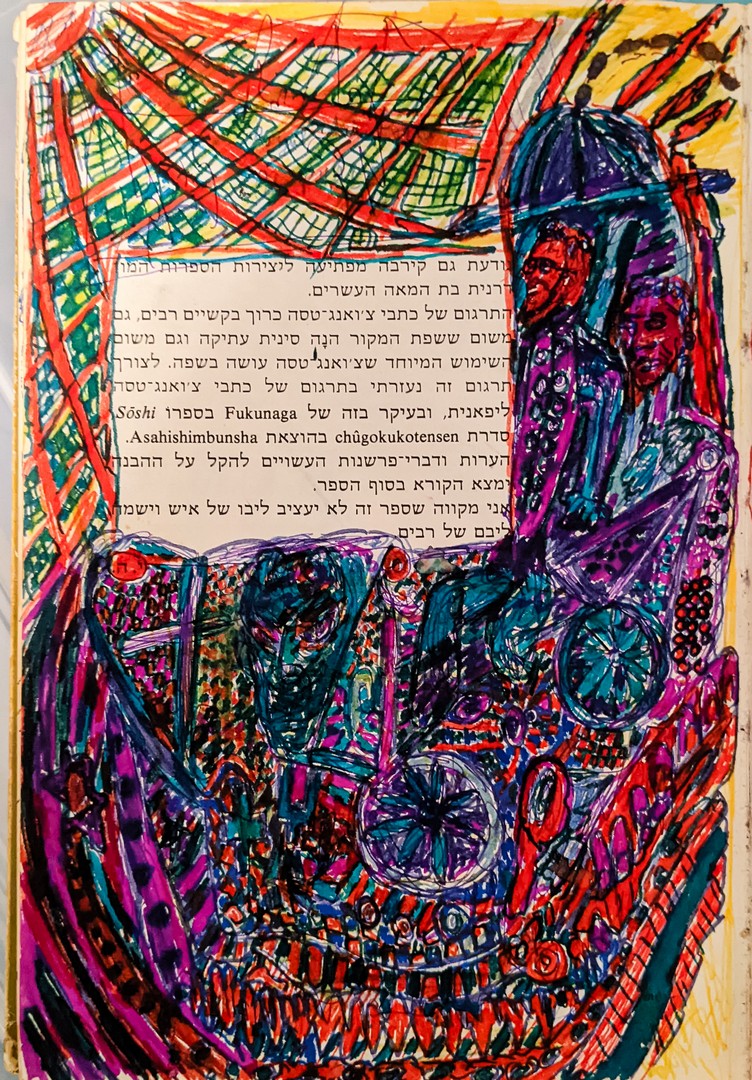 נודעת גם קירבה מפתיעה ליצירות הספרות המו־
דרנית בת המאה העשרים.
התרגום של כתבי צ׳ואנג־טסה כרוך בקשיים רבים, גם
משום ששפת המקור הנָה סינית עתיקה וגם משום
השימוש המיוחד שצ׳ואנג־טסה עושה בשפה. לצורך
תרגום זה נעזרתי בתרגום של כתבי צ׳ואנג־טסה
ליפאנית, ובעיקר בזה של Fukunaga בספרו Sōshi
סדרת chûgokukotensen בהוצאת Asahishimbunsha.
הערות ודברי־פרשנות העשויים להקל על ההבנה
ימצא הקורא בסוף הספר.
אני מקווה שספר זה לא יעציב ליבו של איש וישמח
ליבם של רבים